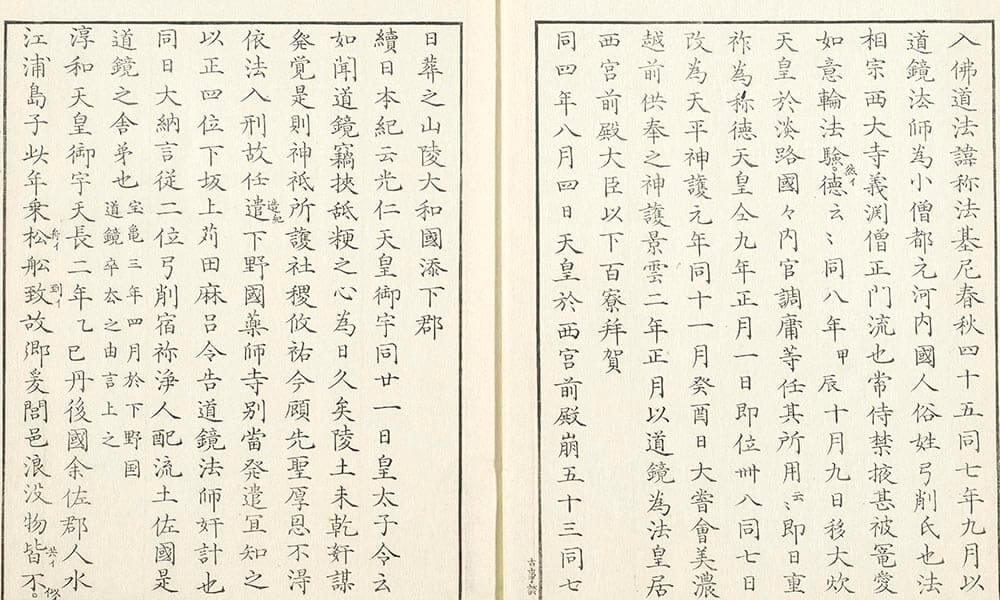 入佛道法諱称法基尼春秋四十五同七年九月以
道鏡法師為小僧都元河内國人俗姓弓削氏也法
相宗西大寺義渕僧正門流也常侍禁掖甚被寵愛
如意輪法驗。德云〻同八年甲辰十月九日移大炊
天皇於淡路國々内官調庸等任其所用云〻即日重
祚為称德天皇仝九年正月一日即位卌八同七日
改為天平神護元年同十一月癸酉日大嘗會美濃
越前供奉之神護景雲二年正月以道鏡為法皇居
西宮前殿大臣以下百寮拜賀
同四年八月四日天皇於西宮前殿崩五十三同七
日葬之山陵大和國添下郡
續日本紀云光仁天皇御宇同廿一日皇太子令云
如聞道鏡竊挾舐粳之心為日久矣陵土未乾奸謀
発覚是則神祇所護社稷攸祐今顧先聖厚恩不淂
依法入刑故任遣下野國薬師寺別當発遣宜知之
造紀
以正四位下坂上苅田麻呂令告道鏡法師奸計也
同日大納言従二位弓削宿祢浄人配流土佐國是
道鏡之舎弟也
宝亀三年四月於下野国
道鏡卒厺之由言上之
淳和天皇御宇天長二年乙巳丹後國余佐郡人水
江浦島子此年乗松舩致故郷爰閭邑浪没物皆不。
到イ